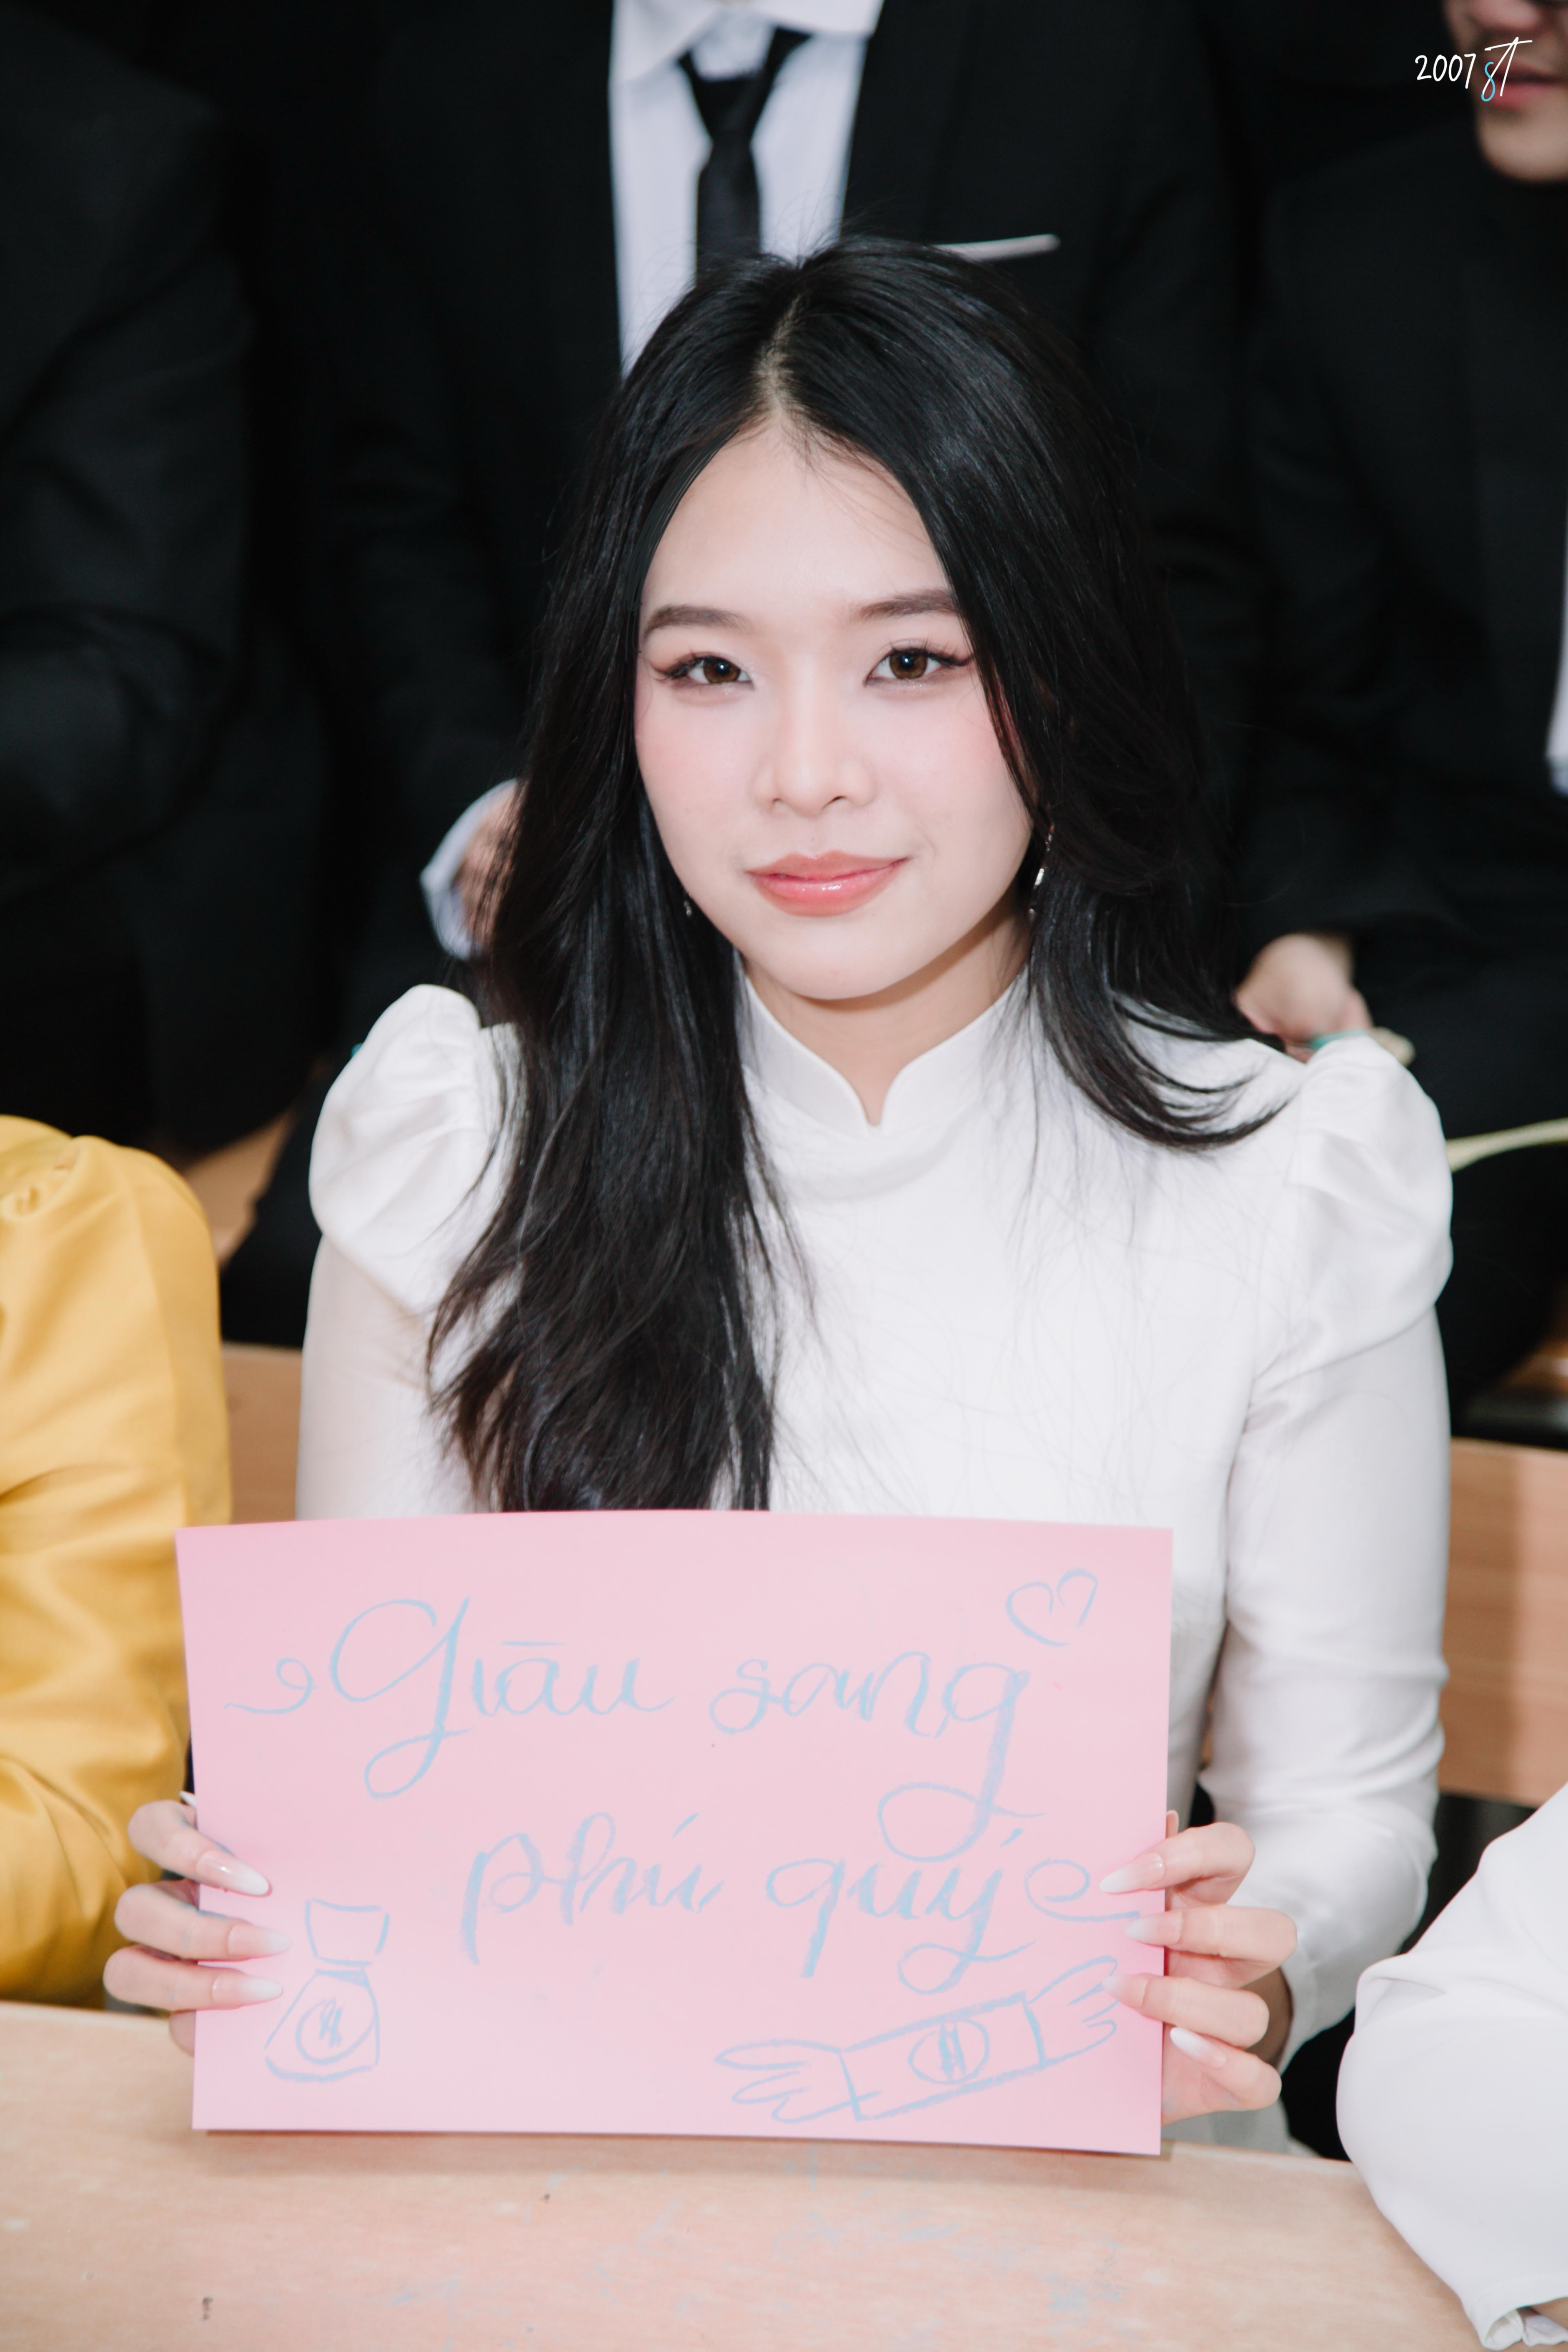 2007 st
Giàu sang
phú quý